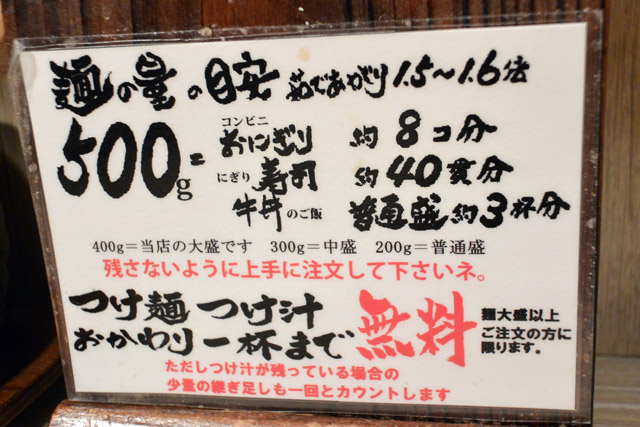 麺の量の目安 茹であがり1.5~1.6倍
500g=
コンビニ
おにぎり 約8コ分
にぎり寿司 約40貫分
牛丼のご飯 普通盛約3杯分
400g=当店の大盛です 300g=中盛 200g=普通盛
残さないように上手に注文して下さいネ。
つけ麺 つけ汁
おかわり一杯まで 無料
麺大盛以上
ご注文の方に
限ります。
ただしつけ汁が残っている場合の
少量の継ぎ足しも一回とカウントします